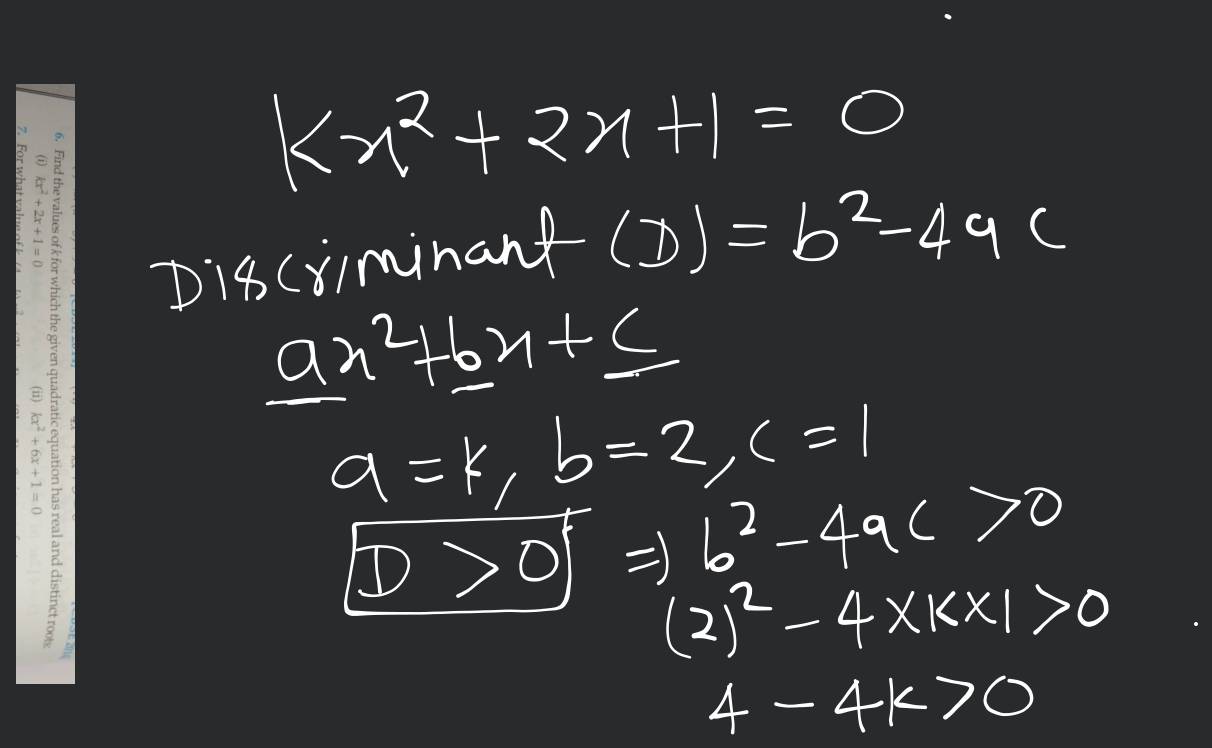 6. Find the values of k for which the given quadratic equation has real and distinct roots:
(i) kx² + 2x + 1 = 0 (ii) kx² + 6x + 1 = 0
7. For what value of k
kx² + 2x + 1 = 0
Discriminant (D) = b² - 4ac
ax² + bx + c
a = k, b = 2, c = 1
D > 0 => b² - 4ac > 0
(2)² - 4 × k × 1 > 0
4 - 4k > 0